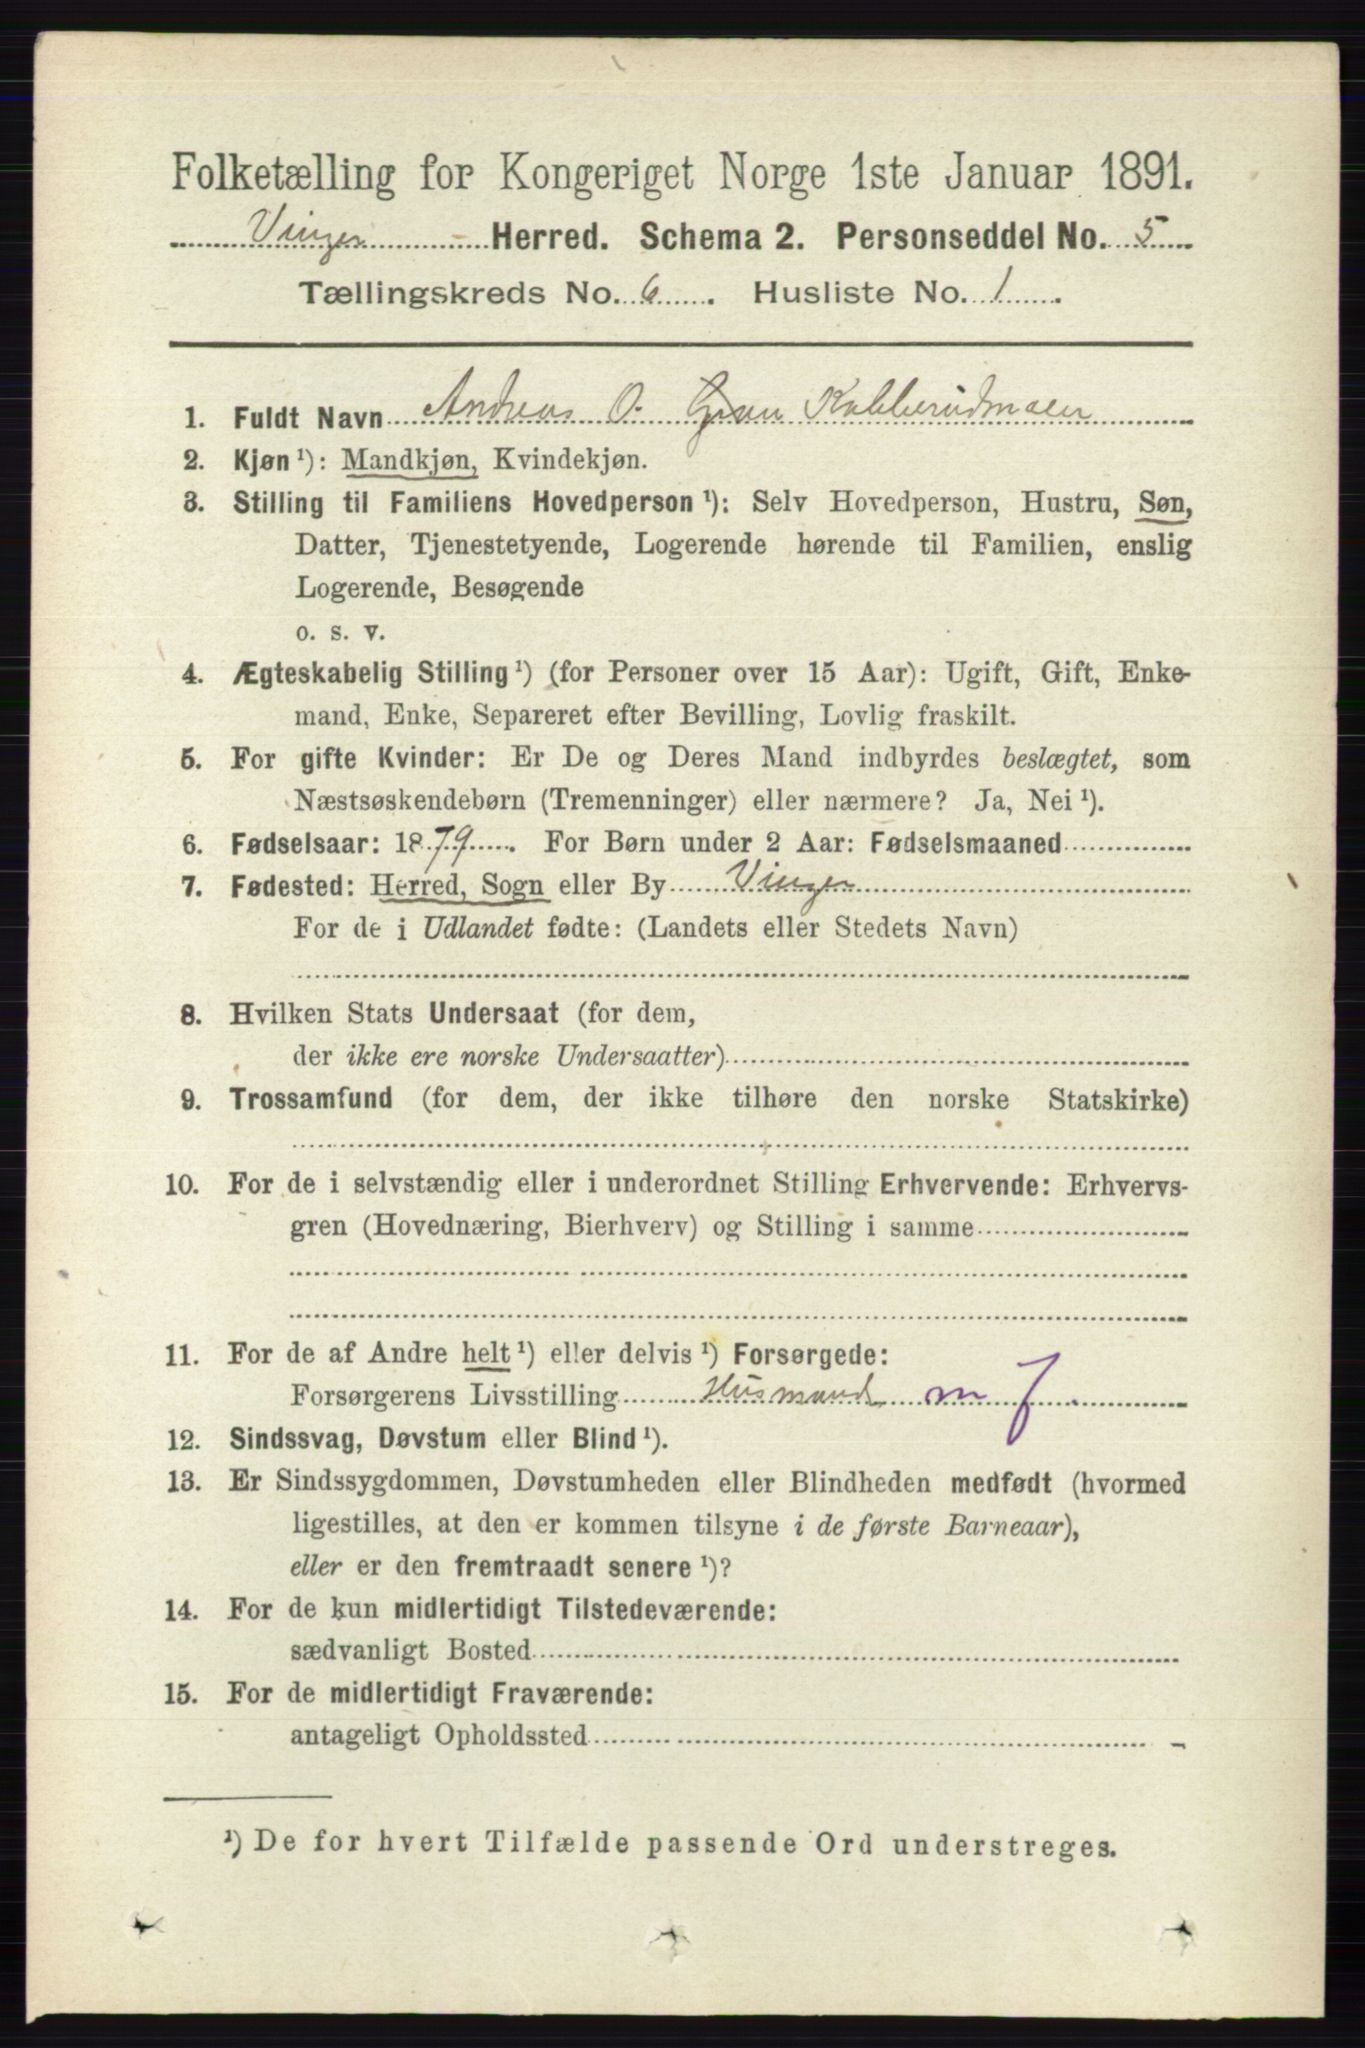 Folketælling for Kongeriget Norge 1ste Januar 1891.
Vinger Herred. Schema 2. Personseddel No. 5
Tællingskreds No. 6. Husliste No. 1.
1. Fuldt Navn Andreas O. Kabberudmoen
2. Kjøn ¹): Mandkjøn, Kvindekjøn.
3. Stilling til Familiens Hovedperson ¹): Selv Hovedperson, Hustru, Søn,
Datter, Tjenestetyende, Logerende hørende til Familien, enslig
Logerende, Besøgende
o. s. v.
4. Ægteskabelig Stilling ¹) (for Personer over 15 Aar): Ugift, Gift, Enke-
mand, Enke, Separeret efter Bevilling, Lovlig fraskilt.
5. For gifte Kvinder: Er De og Deres Mand indbyrdes beslægtet, som
Næstsøskendebørn (Tremenninger) eller nærmere? Ja, Nei ¹).
6. Fødselsaar: 1879. For Børn under 2 Aar: Fødselsmaaned
7. Fødested: Herred, Sogn eller By Vinger
For de i Udlandet fødte: (Landets eller Stedets Navn)
8. Hvilken Stats Undersaat (for dem,
der ikke ere norske Undersaatter)
9. Trossamfund (for dem, der ikke tilhøre den norske Statskirke)
10. For de i selvstændig eller i underordnet Stilling Erhvervende: Erhvervs-
gren (Hovednæring, Bierhverv) og Stilling i samme
11. For de af Andre helt ¹) eller delvis ¹) Forsørgede:
Forsørgerens Livsstilling Husmand m J.
12. Sindssvag, Døvstum eller Blind ¹).
13. Er Sindssygdommen, Døvstumheden eller Blindheden medfødt (hvormed
ligestilles, at den er kommen tilsyne i de første Barneaar),
eller er den fremtraadt senere ¹)?
14. For de kun midlertidigt Tilstedeværende:
sædvanligt Bosted
15. For de midlertidigt Fraværende:
antageligt Opholdssted
¹) De for hvert Tilfælde passende Ord understreges.